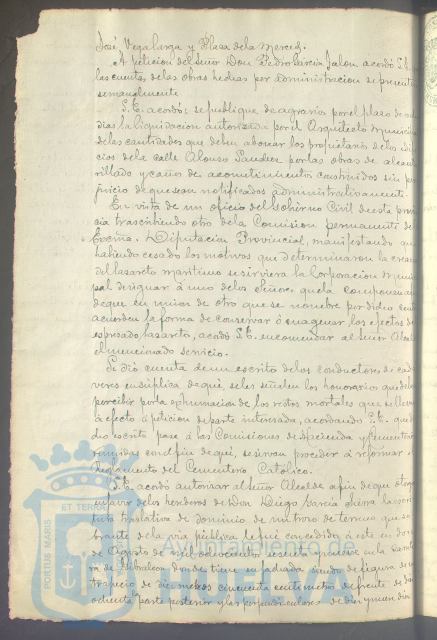 José Vega larga y Plaza de la Merced.
A petición del Señor Don Pedro García Jalon acordó S.E.
las cuentas de las obras hechas por administracion se presenten
semanalmente
S.E. acordó: se publique de agravios por el plazo de
dias la liquidacion autorizada por el Arquitecto municipal
de las cantidades que deben abonar los propietarios de los edifi
cios de la calle Alonso Sanchez por las obras de alcanta
rillado y caños de acometimiento construidos sin per
juicio de que sean notificados administrativamente.
En vista de un oficio del Gobierno Civil de esta provin
cia trascribiendo otro de la Comision permanente de
Excma. Diputacion Provincial, manifestando que
habiendo cesado los motivos que determinaron la creacion
del lazareto maritimo se sirviera la Corporacion Munici
pal designar á uno de los Señores que la componen
de que en union de otro que se nombre por dicho
acuerden la forma de conservar ó enagenar los efectos de
expresado lazareto, acordó S.E. encomendar al Señor Alcalde
el mencionado servicio.
Se dió cuenta de un escrito de los conductores de cada
veres en súplica de que se les señalen los honorarios que deben
percibir por la exhumacion de los restos mortales que se lleven
á efecto á peticion de parte interesada, acordando S.E. que
dicho escrito pase á las Comisiones de Hacienda y Cementerio
reunidas con el fin de que se sirvan proceder á reformar el
Reglamento del Cementerio Católico.
S.E. acordó autorizar al Señor Alcalde a fin de que otorgue
en favor de los herederos de Don Diego García Sierra la escri
tura traslativa de dominio de un trozo de terreno que so
brante de la via pública le fué concedido á este en dos
de Agosto de mil ochocientos sesenta y nueve en la Carrete
ra de Gibraleon donde tiene su fachada siendo de figura de un
trapecio de diez metros cincuenta centimetros de frente de
ochenta parte posterior y las perpendiculares de diez y nueve diez
PORTUS MARIS
ET TERRÆ
Ayuntamiento de
HUELVA